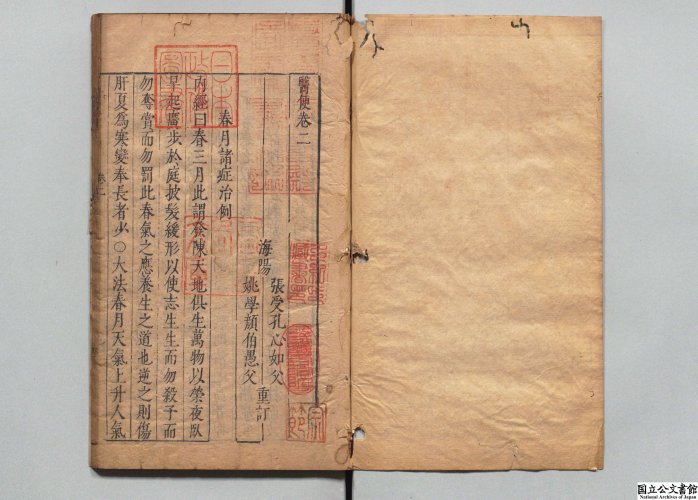 醫便卷二
海陽
張受孔心如父
姚學顏伯愚父
重訂
春月諸症治例
內經曰春三月此謂發陳天地俱生萬物以榮夜臥
早起廣步於庭披髮緩形以使志生生而勿殺予而
勿奪賞而勿罰此春氣之應養生之道也逆之則傷
肝夏為寒變奉長者少○大法春月天氣上升人氣
卷二
国立公文書館
National Archives of Japan